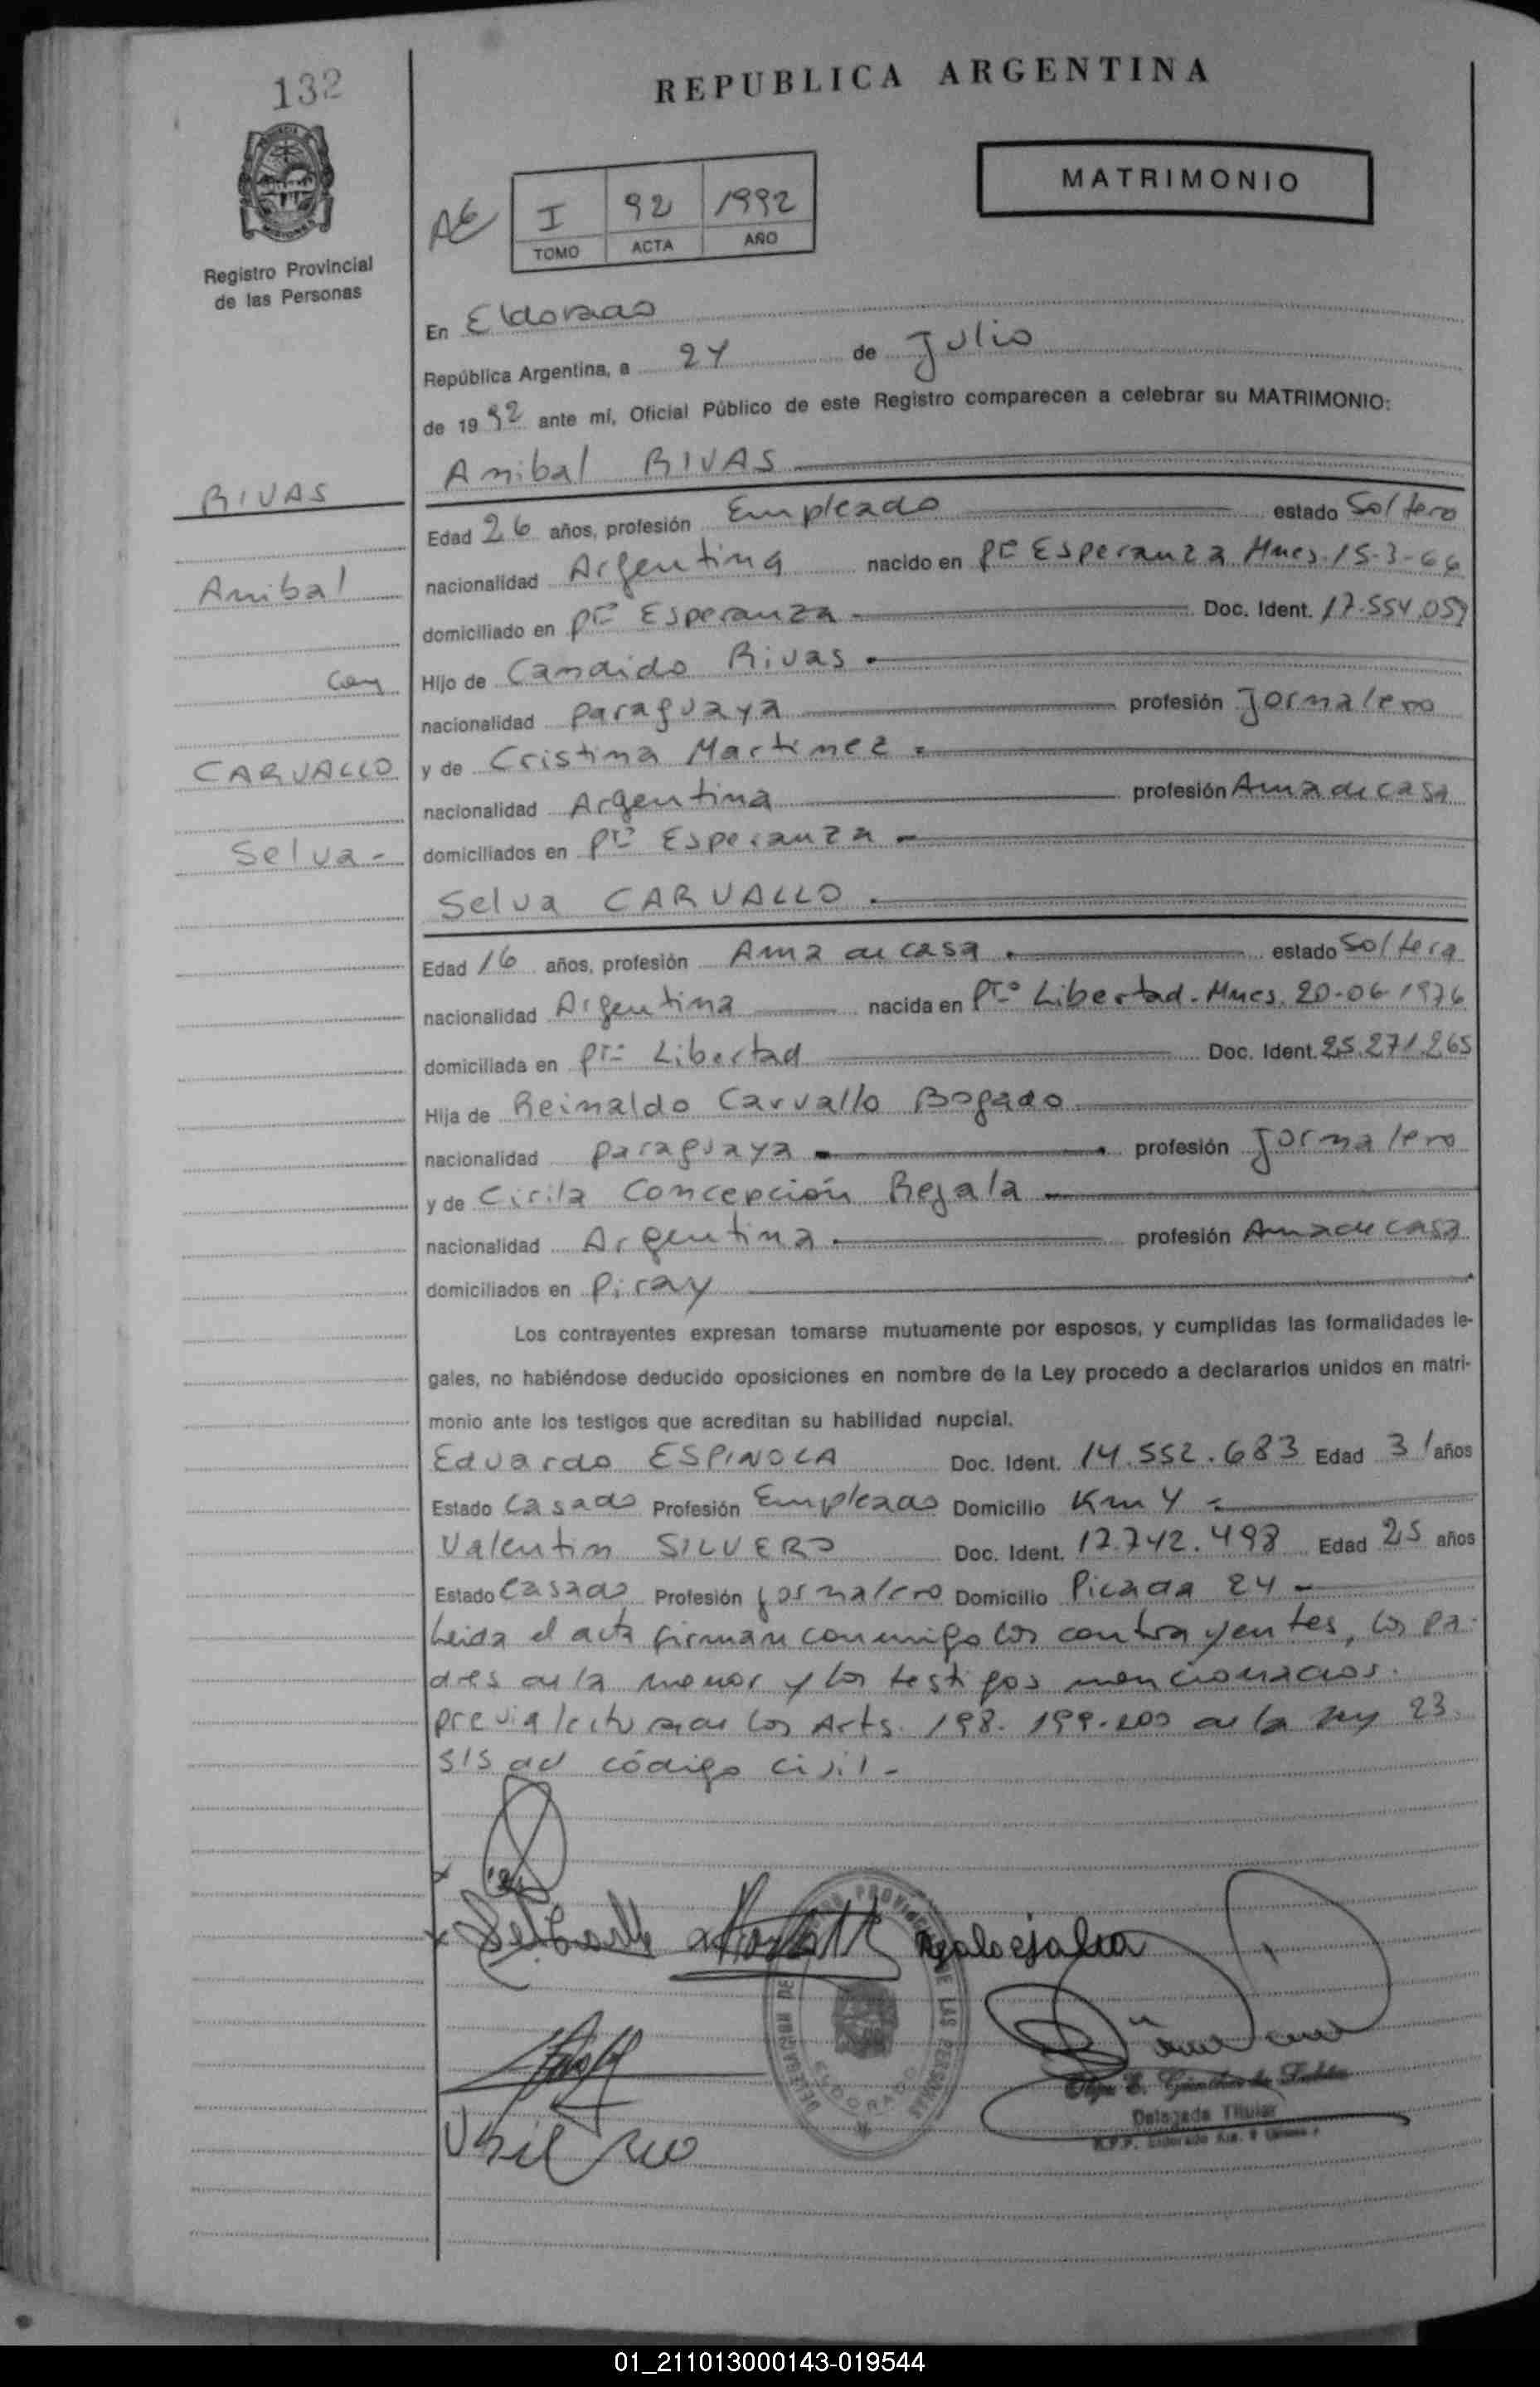 132
REPUBLICA ARGENTINA
MATRIMONIO
Registro Provincial
de las Personas
I 92 1992
TOMO ACTA AÑO
En Eldorado
República Argentina, a 24 de Julio
de 1992 ante mí, Oficial Público de este Registro comparecen a celebrar su MATRIMONIO:
Anibal RIVAS
RIVAS
Edad 26 años, profesión Empleado estado Soltero
Anibal
nacionalidad Argentina nacido en Pto Esperanza Mnes. 15-3-66
domiciliado en Pto Esperanza Doc. Ident. 17.554.057
con
Hijo de Candido Rivas
nacionalidad paraguaya profesión Jornalero
CARVALLO
y de Cristina Martinez
nacionalidad Argentina profesión Ama de casa
Selva-
domiciliados en Pto Esperanza
Selva CARVALLO
Edad 16 años, profesión Ama de casa estado Soltera
nacionalidad Argentina nacida en Pto Libertad-Mnes. 20-06-1976
domiciliada en Pto Libertad Doc. Ident. 25.271.265
Hija de Reinaldo Carvallo Bogado
nacionalidad paraguaya profesión Jornalero
y de Cirila Concepción Rejala
nacionalidad Argentina profesión Ama de casa
domiciliados en Piray
Los contrayentes expresan tomarse mutuamente por esposos, y cumplidas las formalidades le-
gales, no habiéndose deducido oposiciones en nombre de la Ley procedo a declararlos unidos en matri-
monio ante los testigos que acreditan su habilidad nupcial.
Eduardo ESPINOLA Doc. Ident. 14.552.683 Edad 31 años
Estado Casado Profesión Empleado Domicilio Km 4
Valentin SILVERO Doc. Ident. 17.742.498 Edad 25 años
Estado Casado Profesión jornalero Domicilio Picada 24
Leida el acta firman conmigo los contrayentes, los pa-
dres de la menor y los testigos mencionados.
previa lectura de los Arts. 198. 199.200 de la Ley 23.
515 del código civil-
DELEGACION DE REGISTRO PROVINCIAL DE LAS PERSONAS
ELDORADO
Delegada Titular
01_211013000143-019544